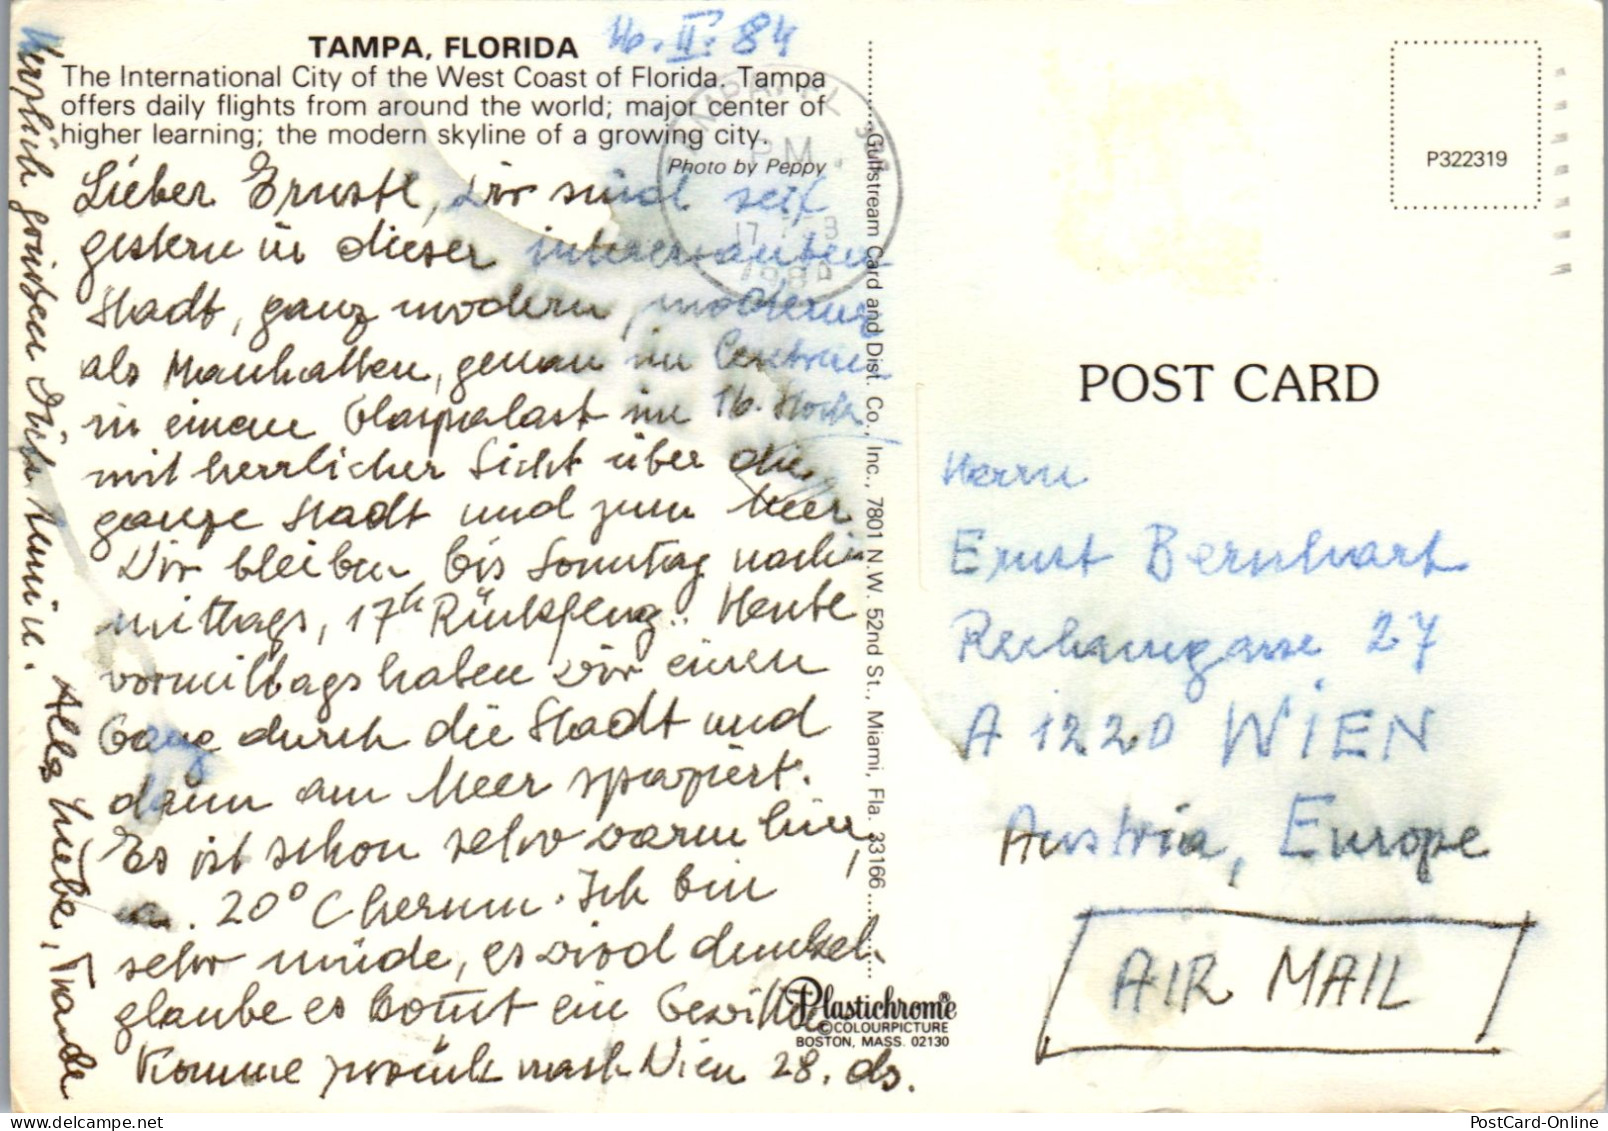 16. II. 84
TAMPA, FLORIDA
The International City of the West Coast of Florida. Tampa
offers daily flights from around the world; major center of
higher learning; the modern skyline of a growing city.
Photo by Peppy
PM
17
1984
Lieber Ernstl, wir sind seit
gestern in dieser interessanten
Stadt, ganz modern, moderner
als Manhatten, genau im Centrum
in einem Glaspalast im 16. Stock
mit herrlicher Sicht über die
ganze Stadt und zum Meer
Wir bleiben bis Sonntag nach-
mittags, 17h Rückflug. Heute
vormittags haben wir einen
Gang durch die Stadt und
dann am Meer spaziert.
Es ist schon sehr warm hier,
ca. 20° C herum. Ich bin
sehr müde, es wird dunkel,
glaube es kommt ein Gewitter
Komme zurück nach Wien 28. ds.
Alles Liebe, Traude
Herzlich grüssen Dich
Gulfstream Card and Dist. Co., Inc., 7801 N.W. 52nd St., Miami, Fla. 33166
Plastichrome®
©COLOURPICTURE
BOSTON, MASS. 02130
P322319
POST CARD
Herrn
Ernst Bernhart
27
A 1220 WIEN
Austria, Europe
AIR MAIL
PostCard-Online
www.delcampe.net